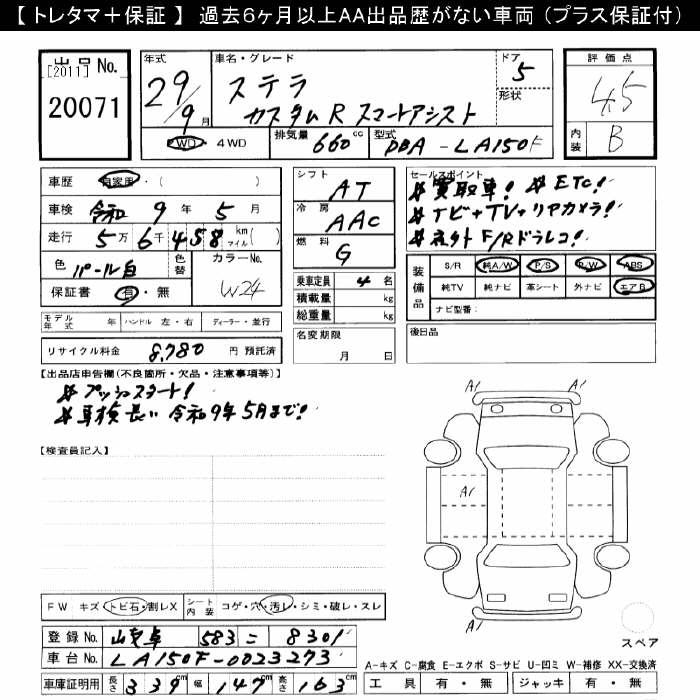 【 トレタマ＋保証 】 過去6ヶ月以上AA出品歴がない車両 (プラス保証付)
出品 No.
[2011]
20071
年式
29/9月
車名・グレード
ステラ
カスタムR スマートアシスト
ドア
5
形状
評価点
4.5
内装
B
2WD・4WD
排気量
660 cc
型式
DBA - LA150F
車歴
自家用・( )
車検 令和 9 年 5 月
走行 5万 6千 458 km マイル ( )
色 パール白
色替
カラーNo.
W24
保証書 有・無
シフト AT
冷房 AAC
燃料 G
乗車定員 4 名
積載量 kg
総重量 kg
名変期限
月 日
セールスポイント
#買取車! #ETC!
#ナビ+TV+リアカメラ!
#社外F/Rドラレコ!
装備品
S/R 純A/W P/S P/W ABS
純TV 純ナビ 革シート 外ナビ エアB
ナビ型番:
後日品
モデル年式 年 ハンドル 左・右 ディーラー・並行
リサイクル料金 8,780 円 預託済
【出品店申告欄(不良箇所・欠品・注意事項等)】
#プッシュスタート!
#車検長い 令和9年5月まで!
【検査員記入】
A1
A1
A1
A1
FW キズ・トビ石・割レX シート内装 コゲ・穴・汚レ・シミ・破レ・スレ
登録No. 583 こ 8301
車台No. LA150F-0023273
車庫証明用 長さ 339 cm 幅 147 cm 高さ 163 cm
スペア
A-キズ C-腐食 E-エクボ S-サビ U-凹ミ W-補修 XX-交換済
工具 有・無 ジャッキ 有・無